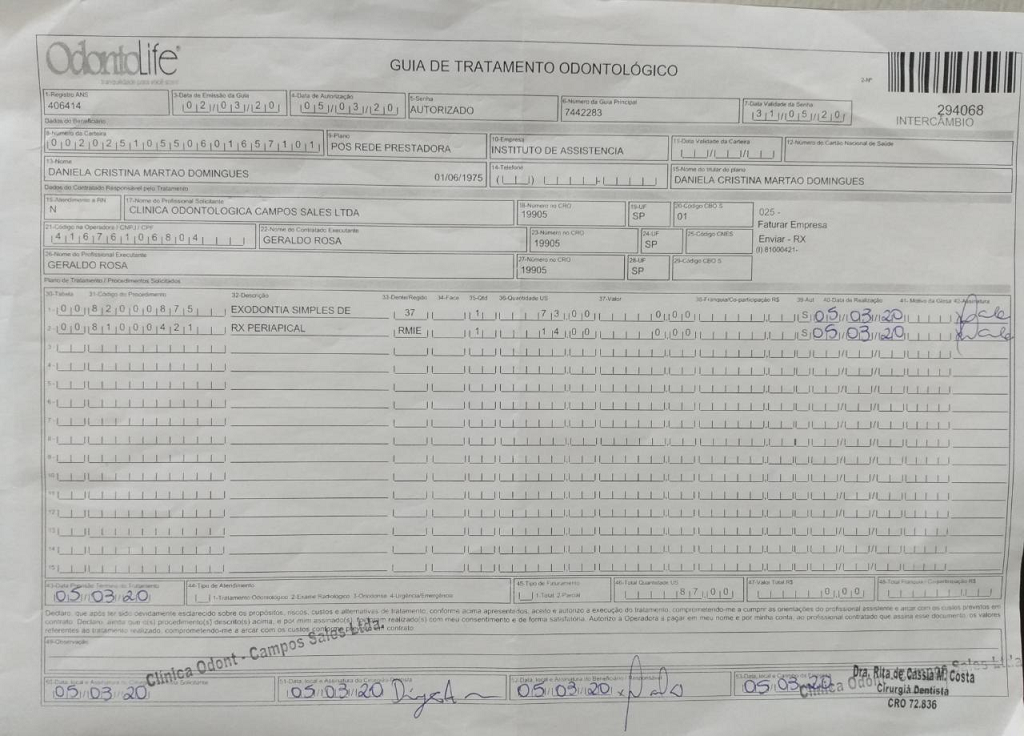 OdontoLife
GUIA DE TRATAMENTO ODONTOLÓGICO
2-Nº
294068
INTERCÂMBIO
1-Registro ANS
406414
3-Data de Emissão da Guia
02/03/20
4-Data de Autorização
05/03/20
5-Senha
AUTORIZADO
6-Número da Guia Principal
7442283
7-Data Validade da Senha
31/05/20
Dados do Beneficiário
8-Número da Carteira
00202510550601657101
9-Plano
POS REDE PRESTADORA
10-Empresa
INSTITUTO DE ASSISTENCIA
11-Data Validade da Carteira
12-Número do Cartão Nacional de Saúde
13-Nome
DANIELA CRISTINA MARTAO DOMINGUES 01/06/1975
14-Telefone
15-Nome do titular do plano
DANIELA CRISTINA MARTAO DOMINGUES
Dados do Contratado Responsável pelo Tratamento
16-Atendimento a RN
N
17-Nome do Profissional Solicitante
CLINICA ODONTOLOGICA CAMPOS SALES LTDA
18-Número no CRO
19905
19-UF
SP
20-Código CBO S
01
025 -
Faturar Empresa
Enviar - RX
(I) 81000421-
21-Código na Operadora / CNPJ / CPF
41676106804
22-Nome do Contratado Executante
GERALDO ROSA
23-Número no CRO
19905
24-UF
SP
25-Código CNES
26-Nome do Profissional Executante
GERALDO ROSA
27-Número no CRO
19905
28-UF
SP
29-Código CBO S
Plano de Tratamento / Procedimentos Solicitados
30-Tabela 31-Código do Procedimento 32-Descrição 33-Dente/Região 34-Face 35-Qtd 36-Quantidade US 37-Valor 38-Franquia/Co-participação R$ 39-Aut 40-Data de Realização 41- Motivo da Glosa 42-Assinatura
1- 00 82000875 EXODONTIA SIMPLES DE 37 1 73 00 0 00 S 05/03/20
2- 00 81000421 RX PERIAPICAL RMIE 1 14 00 0 00 S 05/03/20
3-
4-
5-
6-
7-
8-
9-
10-
11-
12-
13-
14-
15-
43-Data Previsão Término do Tratamento
05/03/20
44-Tipo de Atendimento
1-Tratamento Odontológico 2-Exame Radiológico 3-Ortodontia 4-Urgência/Emergência
45-Tipo de Faturamento
1-Total 2-Parcial
46-Total Quantidade US
87 00
47-Valor Total R$
0 00
48-Total Franquia / Co-participação R$
Declaro, que após ter sido devidamente esclarecido sobre os propósitos, riscos, custos e alternativas de tratamento, conforme acima apresentados, aceito e autorizo a execução do tratamento, comprometendo-me a cumprir as orientações do profissional assistente e arcar com os custos previstos em
contrato. Declaro, ainda que o(s) procedimento(s) descrito(s) acima, e por mim assinado(s), foi/foram realizado(s) com meu consentimento e de forma satisfatória. Autorizo a Operadora a pagar em meu nome e por minha conta, ao profissional contratado que assina esse documento, os valores
referentes ao tratamento realizado, comprometendo-me a arcar com os custos conforme previsto em contrato
49-Observação
Clinica Odont - Campos Sales Ltda.
05/03/20
05/03/20
05/03/20
05/03/20
Dra. Rita de Cassia M. Costa
Cirurgiã Dentista
CRO 72.836